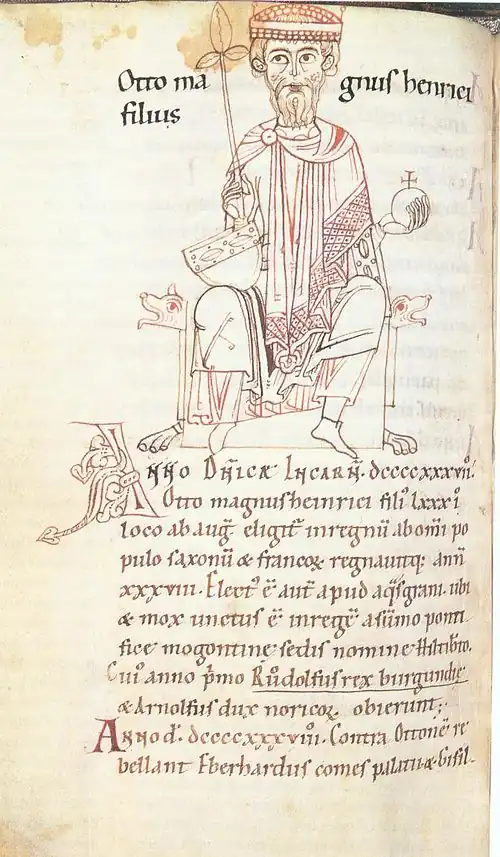 Otto magnus henrici
filius
Anno Dn̄icę Incarn̄. dccccxxxvii.
Otto magnus heinrici fili' lxxxi
loco ab auḡ. eligit̄ in regnū ab om̄i po
pulo saxonū & francoꝝ regnavitq; ann̄
xxxviii. Elect' ē aut̄ apud aq̄sgrani. ubi
& mox unctus ē in regē a sūmo ponti
fice mogontine sedis nomine
Cui' anno p̄mo Růdolfus rex burgundię
& Arnolfus dux noricoꝝ obierunt;
Anno d̄. dccccxxxviii. Contra Ottonē re
bellant Eberhardus comes palatii & Gisil-